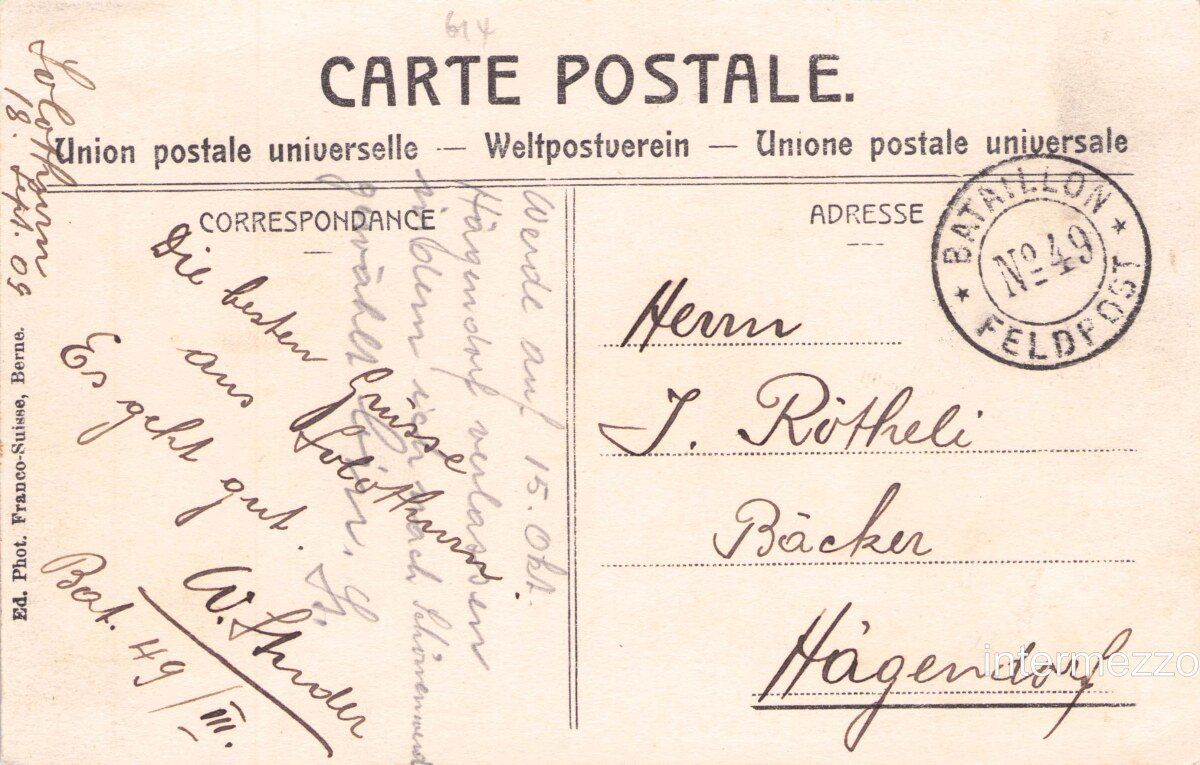 614
CARTE POSTALE.
Union postale universelle — Weltpostverein — Unione postale universale
Solothurn
18. Sept. 09
CORRESPONDANCE
Die besten Grüsse
aus Solothurn.
Es geht gut.
W. Studer
Bat. 49/III.
Werde auf 15. Okt.
Hägendorf verlassen
indem ich nach Schönenwerd
gewählt bin. St.
Ed. Phot. Franco-Suisse, Berne.
ADRESSE
BATAILLON
No 49
FELDPOST
Herrn
J. Rötheli
Bäcker
Hägendorf
intermezzo